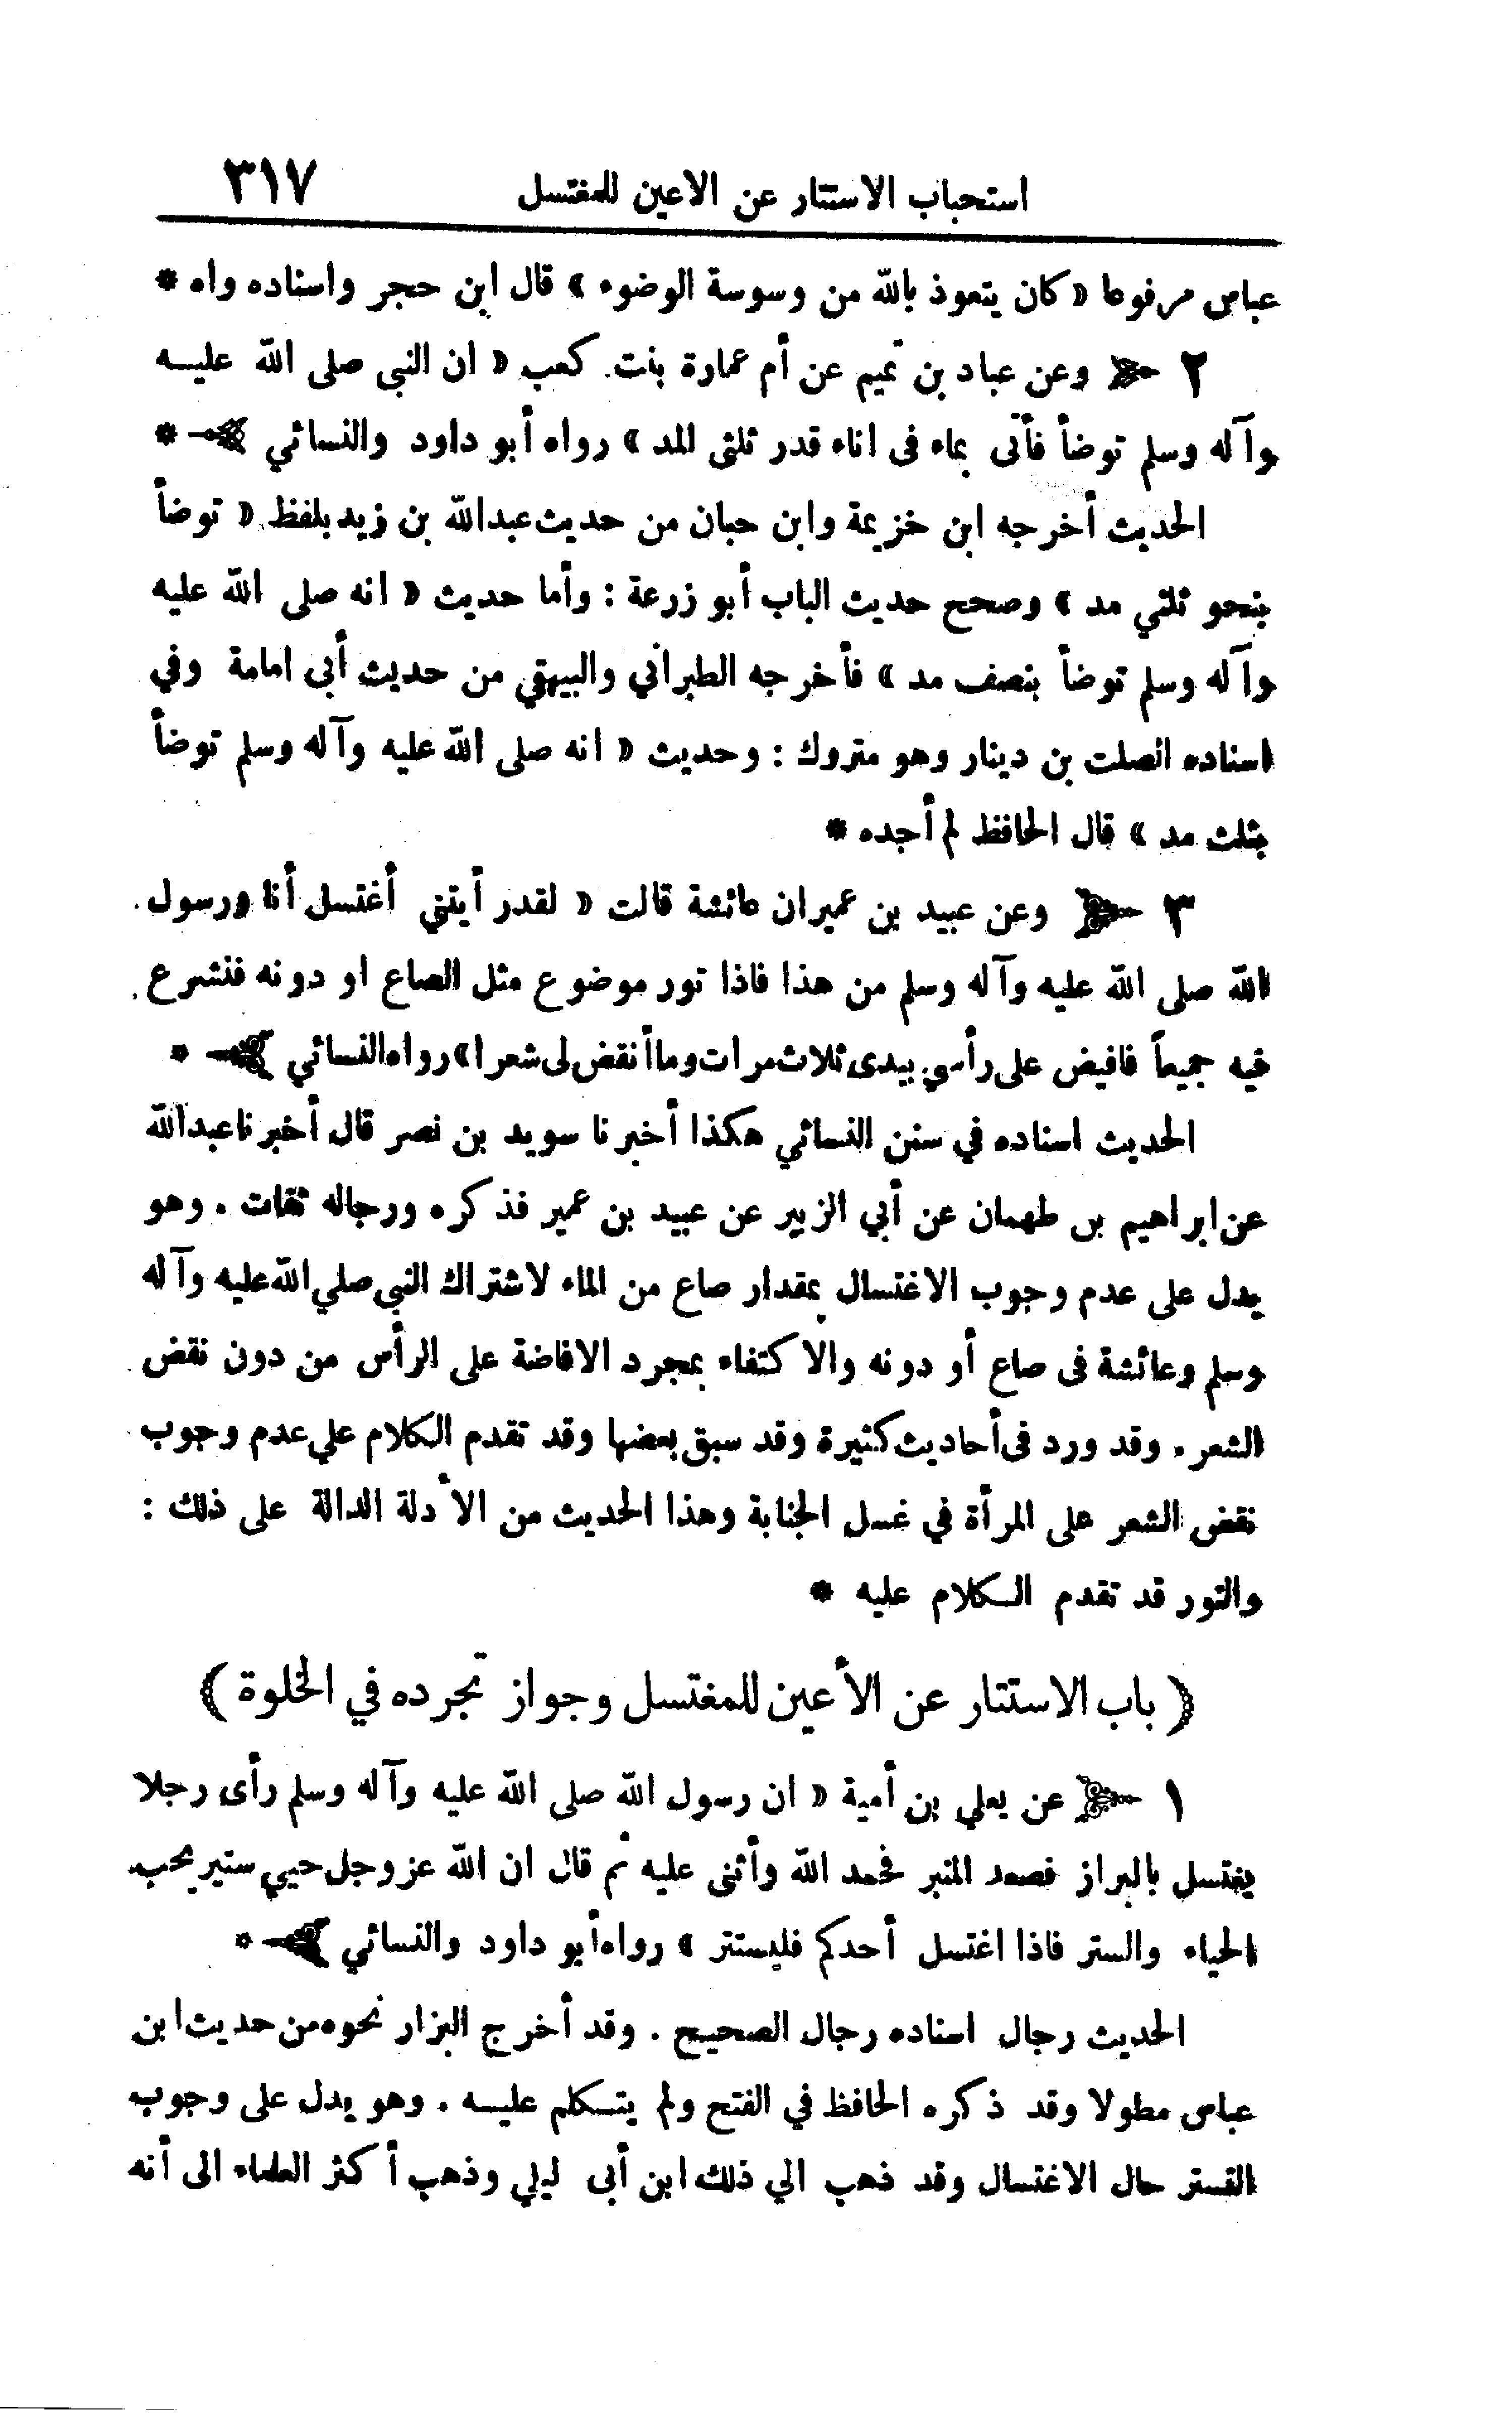 استحباب الاستتار عن الاعين للمغتسل ٣١٧
عباس مرفوعا « كان يتعوذ بالله من وسوسة الوضوء » قال ابن حجر واسناده واه *
٢ وعن عباد بن تميم عن أم عمارة بنت كعب « ان النبي صلى الله عليه
وآله وسلم توضأ فأتى بماء فى اناء قدر ثلثى المد » رواه أبو داود والنسائي *
الحديث أخرجه ابن خزيمة وابن حبان من حديث عبدالله بن زيد بلفظ « توضأ
بنحو ثلثي مد » وصحح حديث الباب أبو زرعة : وأما حديث « انه صلى الله عليه
وآله وسلم توضأ بنصف مد » فأخرجه الطبراني والبيهقي من حديث أبى امامة وفي
اسناده الصلت بن دينار وهو متروك : وحديث « انه صلى الله عليه وآله وسلم توضأ
بثلث مد » قال الحافظ لم أجده *
٣ وعن عبيد بن عمير ان عائشة قالت « لقد رأيتني أغتسل أنا ورسول
الله صلى الله عليه وآله وسلم من هذا فاذا تور موضوع مثل الصاع او دونه فنشرع
فيه جميعاً فافيض على رأسي بيدى ثلاث مرات وما أنقض لى شعرا » رواه النسائي *
الحديث اسناده في سنن النسائي هكذا أخبرنا سويد بن نصر قال أخبرنا عبدالله
عن ابراهيم بن طهمان عن أبي الزبير عن عبيد بن عمير فذكره ورجاله ثقات . وهو
يدل على عدم وجوب الاغتسال بمقدار صاع من الماء لاشتراك النبي صلي الله عليه وآله
وسلم وعائشة فى صاع أو دونه والاكتفاء بمجرد الافاضة على الرأس من دون نقض
الشعر . وقد ورد فى أحاديث كثيرة وقد سبق بعضها وقد تقدم الكلام علي عدم وجوب
نقض الشعر على المرأة في غسل الجنابة وهذا الحديث من الأدلة الدالة على ذلك :
والتور قد تقدم الكلام عليه *
﴿ باب الاستتار عن الأعين للمغتسل وجواز تجرده في الخلوة ﴾
١ عن يعلي بن أمية « ان رسول الله صلى الله عليه وآله وسلم رأى رجلا
يغتسل بالبراز فصعد المنبر فحمد الله وأثنى عليه ثم قال ان الله عز وجل حيي ستير يحب
الحياء والستر فاذا اغتسل أحدكم فليستتر » رواه أبو داود والنسائي *
الحديث رجال اسناده رجال الصحيح . وقد أخرج البزار نحوه من حديث ابن
عباس مطولا وقد ذكره الحافظ في الفتح ولم يتكلم عليه . وهو يدل على وجوب
التستر حال الاغتسال وقد ذهب الي ذلك ابن أبى ليلي وذهب أكثر العلماء الى أنه